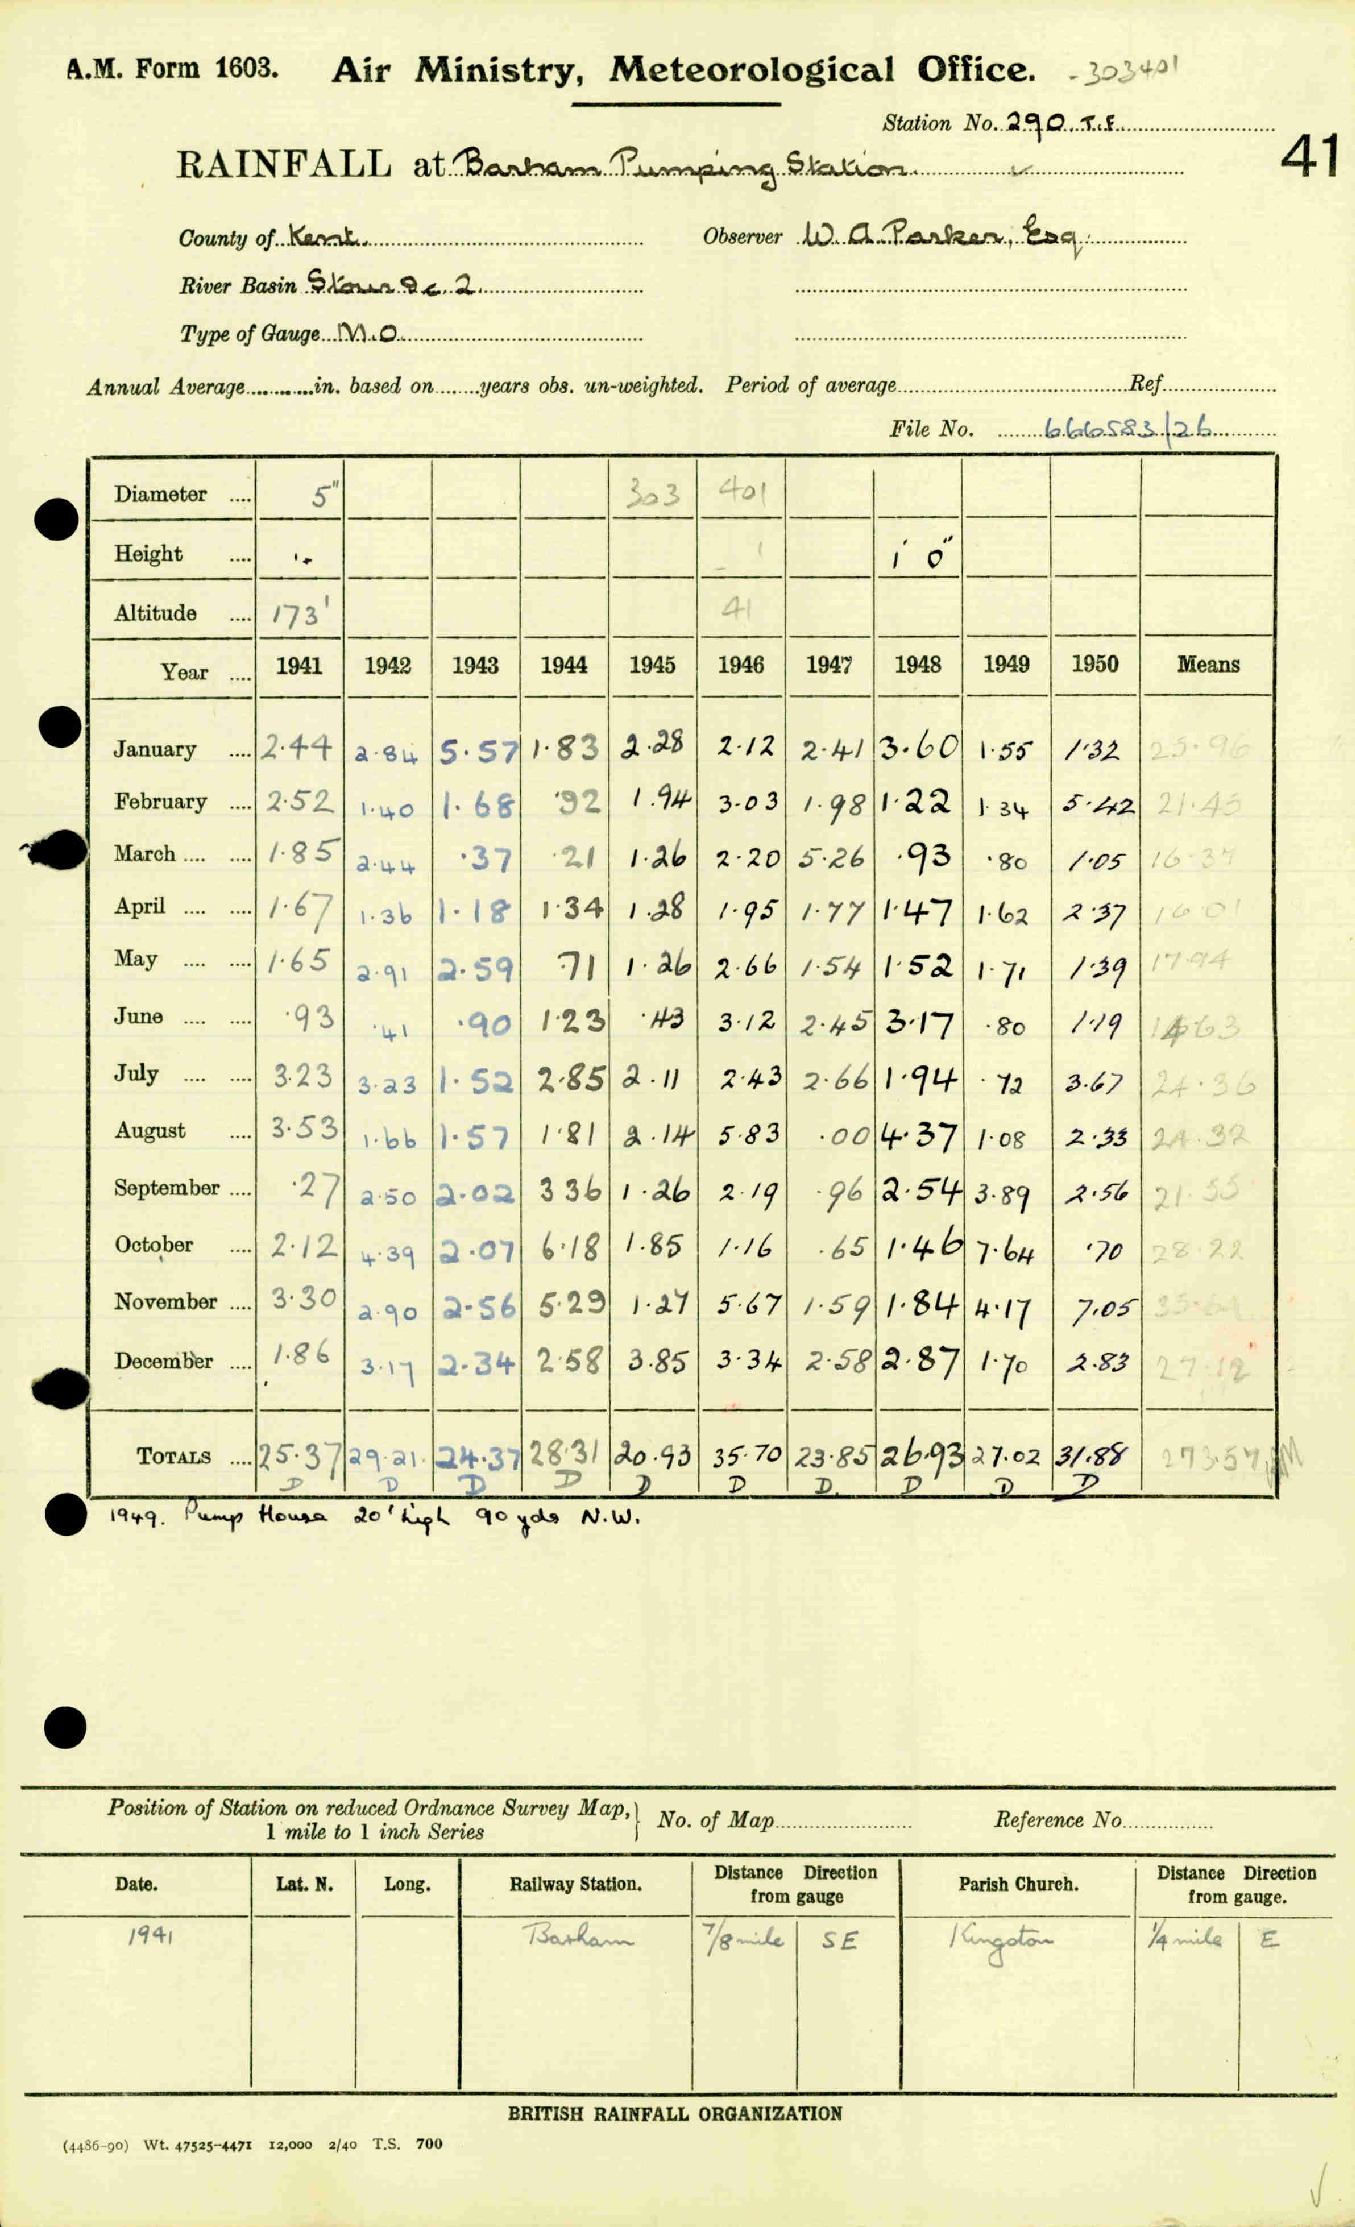 A.M. Form 1603. Air Ministry, Meteorological Office. -303401
Station No. 290.T.f.
RAINFALL at Barham Pumping Station. 41
County of Kent. Observer W. A. Parker, Esq.
River Basin Stour &c. 2.
Type of Gauge M.O.
Annual Average in. based on years obs. un-weighted. Period of average Ref.
File No. 666583/26
Diameter .... 5" 303 401
Height .... 1' 0"
Altitude .... 173' 41
Year .... 1941 1942 1943 1944 1945 1946 1947 1948 1949 1950 Means
January .... 2.44 2.84 5.57 1.83 2.28 2.12 2.41 3.60 1.55 1.32 25.96
February .... 2.52 1.40 1.68 .92 1.94 3.03 1.98 1.22 1.34 5.42 21.45
March .... .... 1.85 2.44 .37 .21 1.26 2.20 5.26 .93 .80 1.05 16.37
April .... .... 1.67 1.36 1.18 1.34 1.28 1.95 1.77 1.47 1.62 2.37 16.01
May .... .... 1.65 2.91 2.59 .71 1.26 2.66 1.54 1.52 1.71 1.39 17.94
June .... .... .93 .41 .90 1.23 .43 3.12 2.45 3.17 .80 1.19 14.63
July .... .... 3.23 3.23 1.52 2.85 2.11 2.43 2.66 1.94 .72 3.67 24.36
August .... 3.53 1.66 1.57 1.81 2.14 5.83 .00 4.37 1.08 2.33 24.32
September .... .27 2.50 2.02 3 36 1.26 2.19 .96 2.54 3.89 2.56 21.55
October .... 2.12 4.39 2.07 6.18 1.85 1.16 .65 1.46 7.64 .70 28.22
November .... 3.30 2.90 2.56 5.29 1.27 5.67 1.59 1.84 4.17 7.05 35.64
December .... 1.86 3.17 2.34 2.58 3.85 3.34 2.58 2.87 1.70 2.83 27.12
TOTALS .... 25.37 29.21. 24.37 28.31 20.93 35.70 23.85 26.93 27.02 31.88 273.57
D D D D D D D. D D D
1949. Pump House 20' high 90 yds N.W.
Position of Station on reduced Ordnance Survey Map, 1 mile to 1 inch Series } No. of Map Reference No.
Date. Lat. N. Long. Railway Station. Distance Direction from gauge Parish Church. Distance Direction from gauge.
1941 Barham 7/8 mile SE Kingston 1/4 mile E
BRITISH RAINFALL ORGANIZATION
(4486-90) Wt. 47525-4471 12,000 2/40 T.S. 700